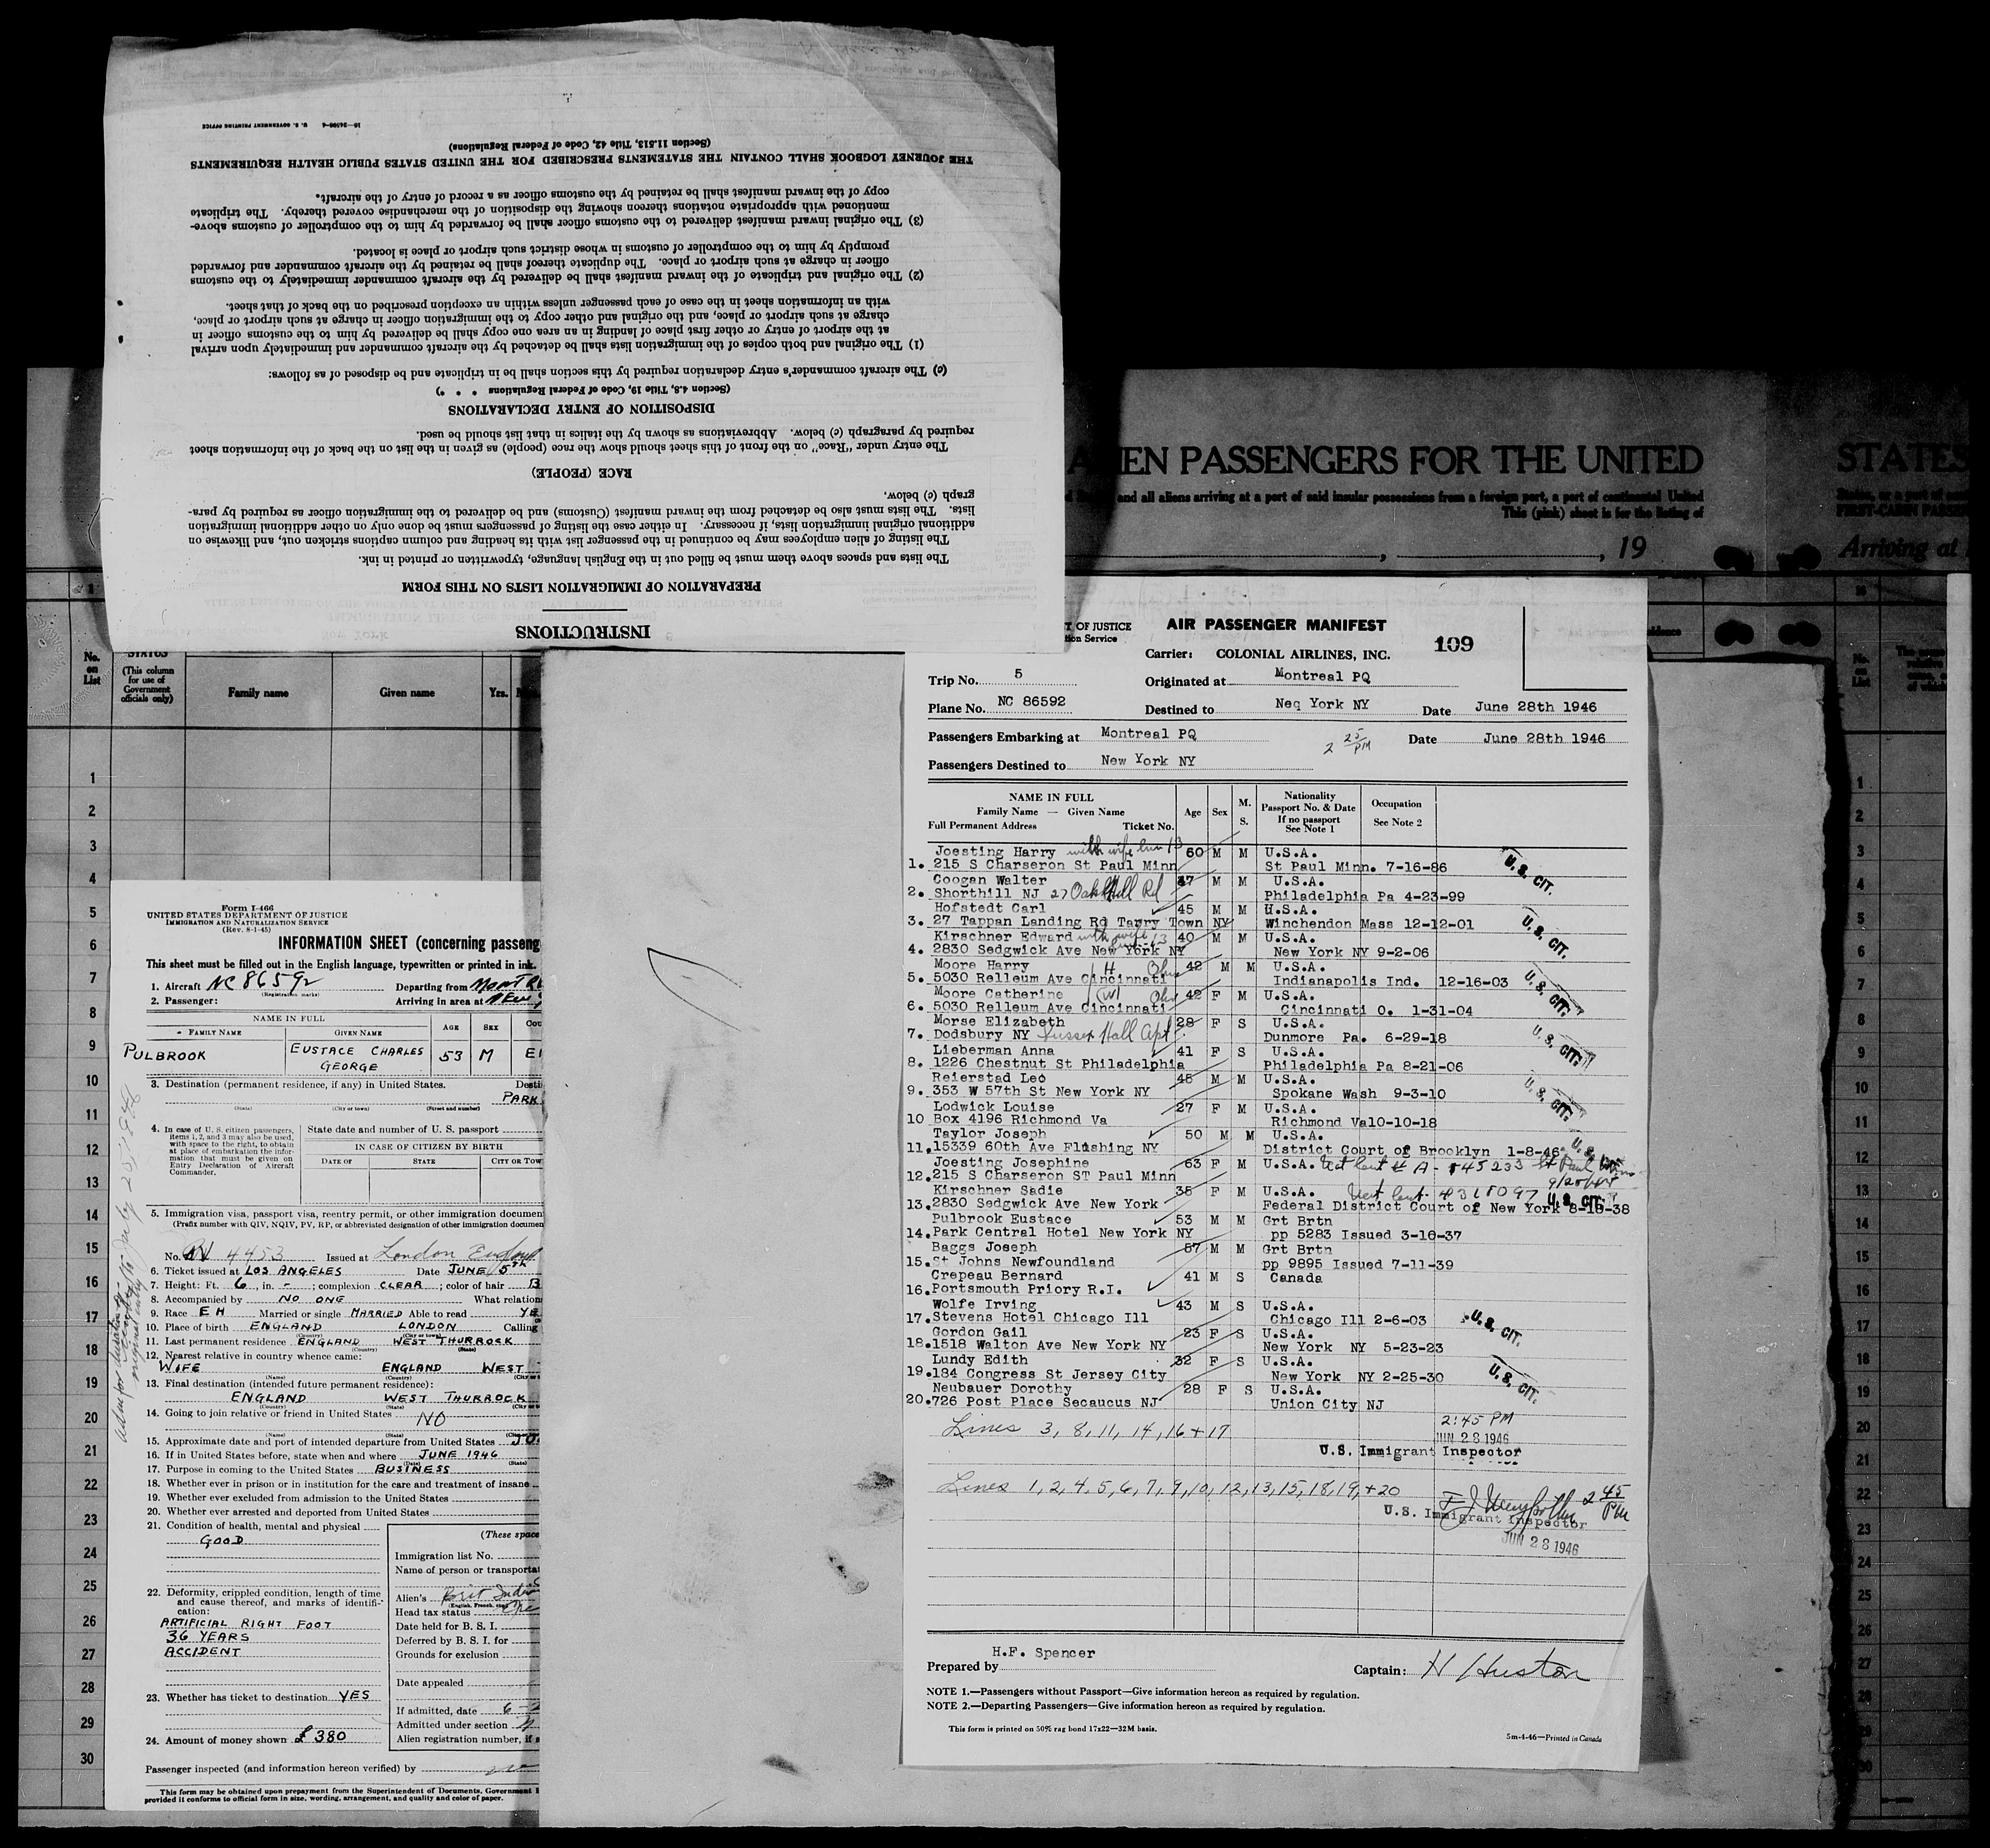 INSTRUCTIONS
PREPARATION OF IMMIGRATION LISTS ON THIS FORM
The lists and spaces above them must be filled out in the English language, typewritten or printed in ink.
The listing of alien employees may be continued in the passenger list with its heading and column captions stricken out, and likewise on
additional original immigration lists, if necessary. In either case the listing of passengers must be done only on other additional immigration
lists. The lists must also be detached from the inward manifest (Customs) and be delivered to the immigration officer as required by para-
graph (c) below.
RACE (PEOPLE)
The entry under "Race" on the front of this sheet should show the race (people) as given in the list on the back of the information sheet
required by paragraph (c) below. Abbreviations as shown by the italics in that list should be used.
DISPOSITION OF ENTRY DECLARATIONS
(Section 4.8, Title 19, Code of Federal Regulations * * *)
(c) The aircraft commander's entry declaration required by this section shall be in triplicate and be disposed of as follows:
(1) The original and both copies of the immigration lists shall be detached by the aircraft commander and immediately upon arrival
at the airport of entry or other first place of landing in an area one copy shall be delivered by him to the customs officer in
charge at such airport or place, and the original and other copy to the immigration officer in charge at such airport or place,
with an information sheet in the case of each passenger unless within an exception prescribed on the back of that sheet.
(2) The original and triplicate of the inward manifest shall be delivered by the aircraft commander immediately to the customs
officer in charge at such airport or place. The duplicate thereof shall be retained by the aircraft commander and forwarded
promptly by him to the comptroller of customs in whose district such airport or place is located.
(3) The original inward manifest delivered to the customs officer shall be forwarded by him to the comptroller of customs above-
mentioned with appropriate notations thereon showing the disposition of the merchandise covered thereby. The triplicate
copy of the inward manifest shall be retained by the customs officer as a record of entry of the aircraft.
THE JOURNEY LOGBOOK SHALL CONTAIN THE STATEMENTS PRESCRIBED FOR THE UNITED STATES PUBLIC HEALTH REQUIREMENTS
(Section 11.513, Title 42, Code of Federal Regulations)
U. S. GOVERNMENT PRINTING OFFICE
EN PASSENGERS FOR THE UNITED
STATES
and all aliens arriving at a port of said insular possessions from a foreign port, a port of continental United
This (pink) sheet is for the listing of
, 19
Arriving at
No. on List
STATUS
(This column for use of Government officials only)
Family name
Given name
Yrs.
1
2
3
4
5
6
7
8
9
10
11
12
13
14
15
16
17
18
19
20
21
22
23
24
25
26
27
28
29
30
Form I-466
UNITED STATES DEPARTMENT OF JUSTICE
IMMIGRATION AND NATURALIZATION SERVICE
(Rev. 8-1-45)
INFORMATION SHEET (concerning passeng
This sheet must be filled out in the English language, typewritten or printed in ink.
1. Aircraft NC 86592 Departing from
(Registration marks)
2. Passenger: Arriving in area at
NAME IN FULL
FAMILY NAME GIVEN NAME AGE SEX
PULBROOK EUSTACE CHARLES GEORGE 53 M
3. Destination (permanent residence, if any) in United States.
PARK
(State) (City or town) (Street and number)
4. In case of U. S. citizen passengers,
items 1, 2, and 3 may also be used,
with space to the right, to obtain
at place of embarkation the infor-
mation that must be given on
Entry Declaration of Aircraft
Commander.
State date and number of U. S. passport
IN CASE OF CITIZEN BY BIRTH
DATE OF STATE CITY OR TOW
5. Immigration visa, passport visa, reentry permit, or other immigration documen
(Prefix number with QIV, NQIV, PV, RP, or abbreviated designation of other immigration documen
No. 4453 Issued at London
6. Ticket issued at LOS ANGELES Date JUNE 5th
7. Height: Ft. 6, in. - ; complexion CLEAR ; color of hair
8. Accompanied by NO ONE What relation
9. Race EH Married or single MARRIED Able to read YE
10. Place of birth ENGLAND LONDON Calling
11. Last permanent residence ENGLAND WEST THURROCK
12. Nearest relative in country whence came:
WIFE ENGLAND WEST
13. Final destination (intended future permanent residence):
ENGLAND WEST THURROCK
14. Going to join relative or friend in United States NO
15. Approximate date and port of intended departure from United States
16. If in United States before, state when and where JUNE 1946
17. Purpose in coming to the United States BUSINESS
18. Whether ever in prison or in institution for the care and treatment of insane
19. Whether ever excluded from admission to the United States
20. Whether ever arrested and deported from United States
21. Condition of health, mental and physical
GOOD
22. Deformity, crippled condition, length of time
and cause thereof, and marks of identifi-
cation:
ARTIFICIAL RIGHT FOOT
36 YEARS
ACCIDENT
23. Whether has ticket to destination YES
24. Amount of money shown £ 380
(These space
Immigration list No.
Name of person or transporta
Alien's
Head tax status
Date held for B. S. I.
Deferred by B. S. I. for
Grounds for exclusion
Date appealed
If admitted, date
Admitted under section
Alien registration number, if
Passenger inspected (and information hereon verified) by
This form may be obtained upon prepayment from the Superintendent of Documents, Government
provided it conforms to official form in size, wording, arrangement, and quality and color of paper.
T OF JUSTICE
tion Service
AIR PASSENGER MANIFEST
109
Carrier: COLONIAL AIRLINES, INC.
Trip No. 5 Originated at Montreal PQ
Plane No. NC 86592 Destined to Neq York NY Date June 28th 1946
Passengers Embarking at Montreal PQ 2 25 PM Date June 28th 1946
Passengers Destined to New York NY
NAME IN FULL
Family Name — Given Name
Full Permanent Address Ticket No.
Age
Sex
M. S.
Nationality Passport No. & Date If no passport See Note 1
Occupation See Note 2
Joesting Harry with wife 60 M M U.S.A.
1. 215 S Charseron St Paul Minn St Paul Minn. 7-16-86
Coogan Walter 47 M M U.S.A.
2. Shorthill NJ 27 Oak Hill Rd Philadelphia Pa 4-23-99
Hofstedt Carl 45 M M U.S.A.
3. 27 Tappan Landing Rd Tarry Town NY Winchendon Mass 12-12-01
Kirschner Edward with wife 40 M M U.S.A.
4. 2830 Sedgwick Ave New York NY New York NY 9-2-06
Moore Harry H 42 M M U.S.A.
5. 5030 Relleum Ave Cincinnati Ohio Indianapolis Ind. 12-16-03
Moore Catherine W 42 F M U.S.A.
6. 5030 Relleum Ave Cincinnati Ohio Cincinnati O. 1-31-04
Morse Elizabeth 28 F S U.S.A.
7. Dodsbury NY Hall Apt Dunmore Pa. 6-29-18
Lieberman Anna 41 F S U.S.A.
8. 1226 Chestnut St Philadelphia Philadelphia Pa 8-21-06
Reierstad Leo 45 M M U.S.A.
9. 353 W 57th St New York NY Spokane Wash 9-3-10
Lodwick Louise 27 F M U.S.A.
10 Box 4196 Richmond Va Richmond Va10-10-18
Taylor Joseph 50 M M U.S.A.
11.15339 60th Ave Flushing NY District Court of Brooklyn 1-8-46
Joesting Josephine 63 F M U.S.A.
12.215 S Charseron ST Paul Minn
Kirschner Sadie 38 F M U.S.A.
13.2830 Sedgwick Ave New York Federal District Court of New York 8-18-38
Pulbrook Eustace 53 M M Grt Brtn
14.Park Central Hotel New York NY pp 5283 Issued 3-16-37
Baggs Joseph 57 M M Grt Brtn
15.St Johns Newfoundland pp 9895 Issued 7-11-39
Crepeau Bernard 41 M S Canada
16.Portsmouth Priory R.I.
Wolfe Irving 43 M S U.S.A.
17.Stevens Hotel Chicago Ill Chicago Ill 2-6-03
Gordon Gail 23 F S U.S.A.
18.1518 Walton Ave New York NY New York NY 5-23-23
Lundy Edith 32 F S U.S.A.
19.184 Congress St Jersey City New York NY 2-25-30
Neubauer Dorothy 28 F S U.S.A.
20.726 Post Place Secaucus NJ Union City NJ
U. S. CIT.
U. S. CIT.
U. S. CIT.
U. S. CIT.
U. S. CIT.
U. S. CIT.
U. S. CIT.
U. S. CIT.
Lines 3, 8, 11, 14, 16 + 17
2:45 PM
JUN 28 1946
U.S. Immigrant Inspector
Lines 1, 2, 4, 5, 6, 7, 9, 10, 12, 13, 15, 18, 19, + 20
2 45 PM
U.S. Immigrant Inspector
JUN 28 1946
H.F. Spencer
Prepared by
Captain: H Huston
NOTE 1.—Passengers without Passport—Give information hereon as required by regulation.
NOTE 2.—Departing Passengers—Give information hereon as required by regulation.
This form is printed on 50% rag bond 17x22—32M basis.
5m-4-46—Printed in Canada